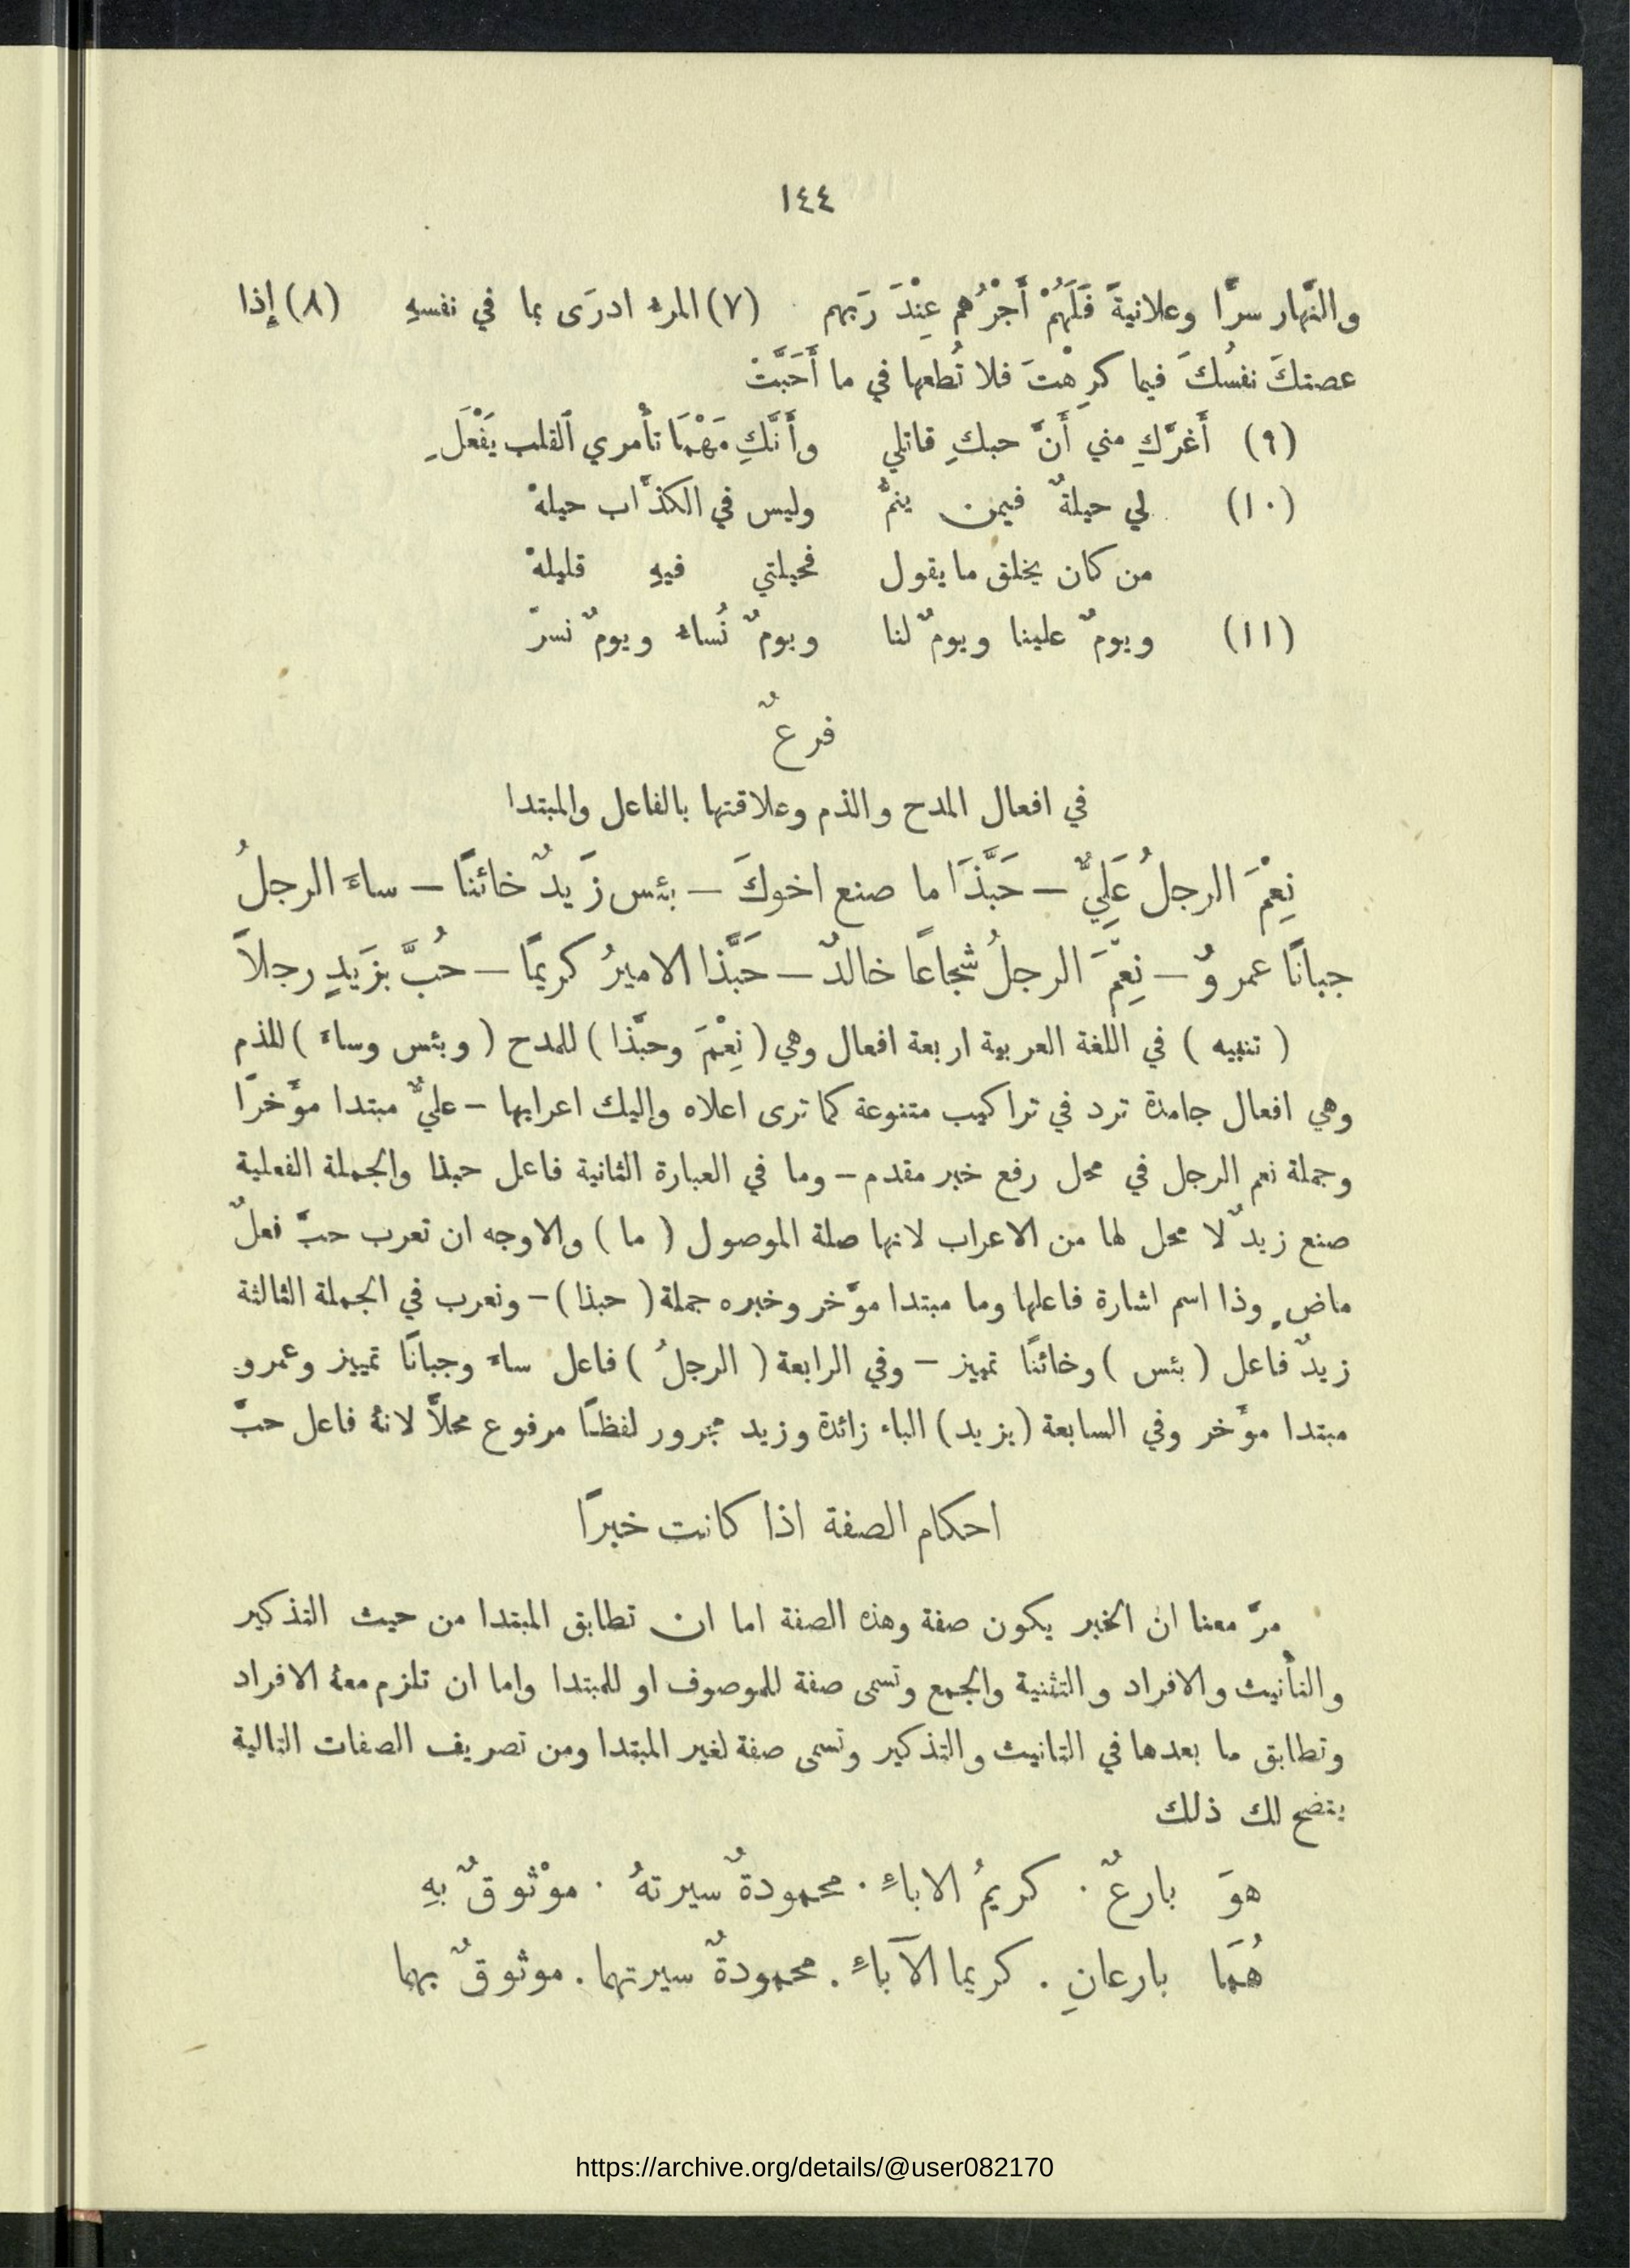 ١٤٤
والنَّهار سرًّا وعلانيةً فَلَهُمْ أَجْرُهم عِنْدَ رَبهم (٧) المرء ادرَى بما في نفسهِ (٨) إِذا
عصتكَ نفسُكَ فيما كرِهْتَ فلا تُطعها في ما أَحَبَّتْ
(٩) أَغرَّكِ مني أَنَّ حبكِ قاتلي وأَنَّكِ مَهْمَا تأْمري القلب يَفْعَلِ
(١٠) لي حيلةٌ فيمن ينمُّ وليس في الكذَّاب حيلهْ
من كان يخلق ما يقول فحيلتي فيهِ قليلهْ
(١١) ويومٌ علينا ويومٌ لنا ويومٌ نُساء ويومٌ نسرّ
فرعٌ
في افعال المدح والذم وعلاقتها بالفاعل والمبتدا
نِعْمَ الرجلُ عَلِيٌّ – حَبَّذَا ما صنع اخوكَ – بئس زَيدٌ خائنًا – ساءَ الرجلُ
جبانًا عمروٌ – نِعْمَ الرجلُ شجاعًا خالدٌ – حَبَّذا الاميرُ كريمًا – حُبَّ بزَيدٍ رجلاً
( تنبيه ) في اللغة العربية اربعة افعال وهي ( نِعْمَ وحبَّذا ) للمدح ( وبئس وساءَ ) للذم
وهي افعال جامدة ترد في تراكيب متنوعة كما ترى اعلاه واليك اعرابها – عليٌّ مبتدا مؤَخرًا
وجملة نعم الرجل في محل رفع خبر مقدم – وما في العبارة الثانية فاعل حبذا والجملة الفعلية
صنع زيدٌ لا محل لها من الاعراب لانها صلة الموصول ( ما ) والاوجه ان تعرب حبَّ فعلٌ
ماضٍ وذا اسم اشارة فاعلها وما مبتدا مؤَخر وخبره جملة ( حبذا ) – ونعرب في الجملة الثالثة
زيدٌ فاعل ( بئس ) وخائنًا تمييز – وفي الرابعة ( الرجلُ ) فاعل ساءَ وجبانًا تمييز وعمرو
مبتدا مؤَخر وفي السابعة (بزيد) الباء زائدة وزيد مجرور لفظًا مرفوع محلاًّ لانهُ فاعل حبَّ
احكام الصفة اذا كانت خبرًا
مرَّ معنا ان الخبر يكون صفة وهذه الصفة اما ان تطابق المبتدا من حيث التذكير
والتأنيث والافراد والتثنية والجمع وتسمى صفة للموصوف او للمبتدا واما ان تلزم معهُ الافراد
وتطابق ما بعدها في التانيث والتذكير وتسمى صفة لغير المبتدا ومن تصريف الصفات التالية
يتضح لك ذلك
هوَ بارعٌ . كريمُ الاباءِ . محمودةٌ سيرتهُ . موْثوقٌ بهِ
هُمَا بارعانِ . كريما الآباءِ . محمودةٌ سيرتهما . موثوقٌ بهما
https://archive.org/details/@user082170